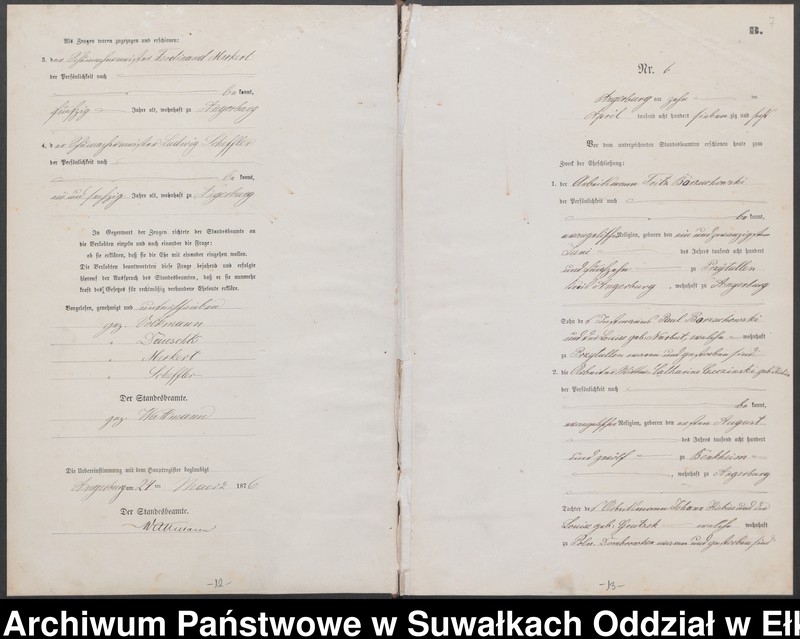 Als Zeugen waren zugezogen und erschienen:
3. der Ferdinand Merkert
der Persönlichkeit nach
bekannt,
fünfzig Jahre alt, wohnhaft zu Angerburg
4. der Ludwig Scheffler
der Persönlichkeit nach
bekannt,
ein und fünfzig Jahre alt, wohnhaft zu Angerburg
In Gegenwart der Zeugen richtete der Standesbeamte an
die Verlobten einzeln und nach einander die Frage:
ob sie erklären, daß sie die Ehe mit einander eingehen wollen.
Die Verlobten beantworteten diese Frage bejahend und erfolgte
hierauf der Ausspruch des Standesbeamten, daß er sie nunmehr
kraft des Gesetzes für rechtmäßig verbundene Eheleute erkläre.
Vorgelesen, genehmigt und unterschrieben
gez.
Merkert
Scheffler
Der Standesbeamte.
gez. Wattmann
Die Uebereinstimmung mit dem Hauptregister beglaubigt
Angerburg am 21 ten Maerz 1876
Der Standesbeamte.
Wattmann
-12-
7
B.
Nr. 6
Angerburg am zehn ten
April tausend acht hundert sieben zig und sechs
Vor dem unterzeichneten Standesbeamten erschienen heute zum
Zweck der Eheschließung:
1. der Arbeitsmann Fritz Barzuchowski
der Persönlichkeit nach
bekannt,
evangelischer Religion, geboren den ein und zwanzigsten
Juni des Jahres tausend acht hundert
und zu Przytullen
Kreis Angerburg, wohnhaft zu Angerburg
Sohn des Instmanns Paul Barzuchowski
und der Louise geb. welche wohnhaft
zu Przytullen waren und gestorben sind
2. die Catharine geb.
der Persönlichkeit nach
bekannt,
evangelischer Religion, geboren den ersten August
des Jahres tausend acht hundert
und zwölf zu Benkheim
, wohnhaft zu Angerburg
Tochter des Arbeitsmann Johann und der
Louise geb. welche wohnhaft
zu Poln. Dombrowken waren und gestorben sind
-13-
Archiwum Państwowe w Suwałkach Oddział w Eł